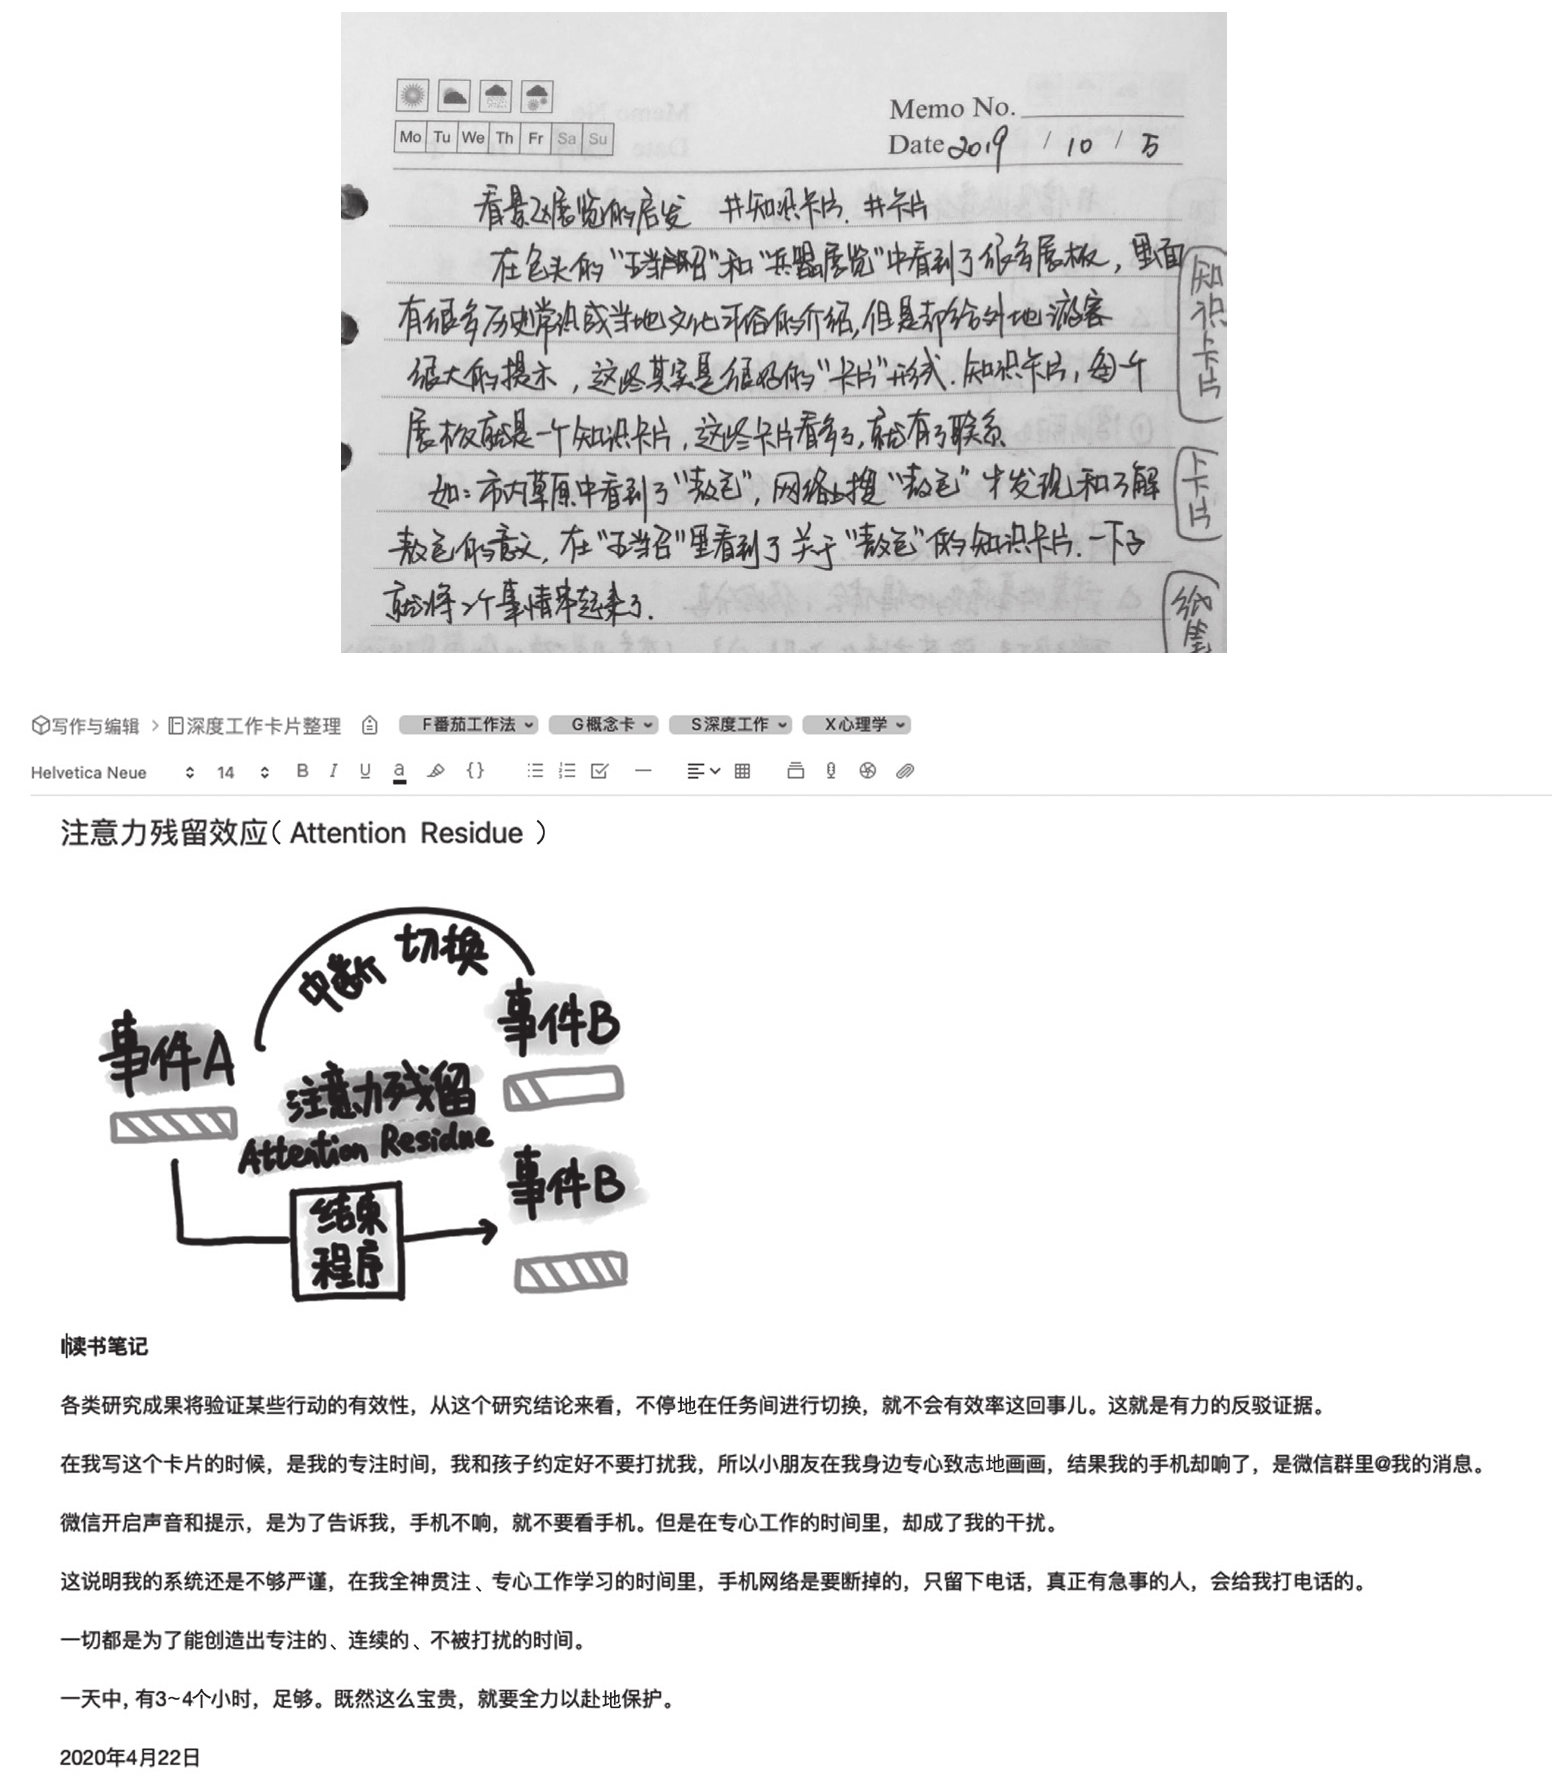 Mo Tu We Th Fr Sa Su
Memo No.
Date 2019 / 10 / 5
看景区展览的启发 #知识卡片. #卡片
在包头的“五当召”和“兵器展览”中看到了很多展板，里面
有很多历史常识或当地文化习俗的介绍,但是却给外地游客
很大的提示，这些其实是很好的“卡片”形式.知识卡片，每一个
展板就是一个知识卡片,这些卡片看多了,就有了联系
如：市内草原中看到了“敖包”,网络上搜“敖包”才发现和了解
敖包的意义,在“五当召”里看到了关于“敖包”的知识卡片.一下子
就将2个事情串起来了.
知识卡片
卡片
纸笔
写作与编辑 > 深度工作卡片整理 F番茄工作法 G概念卡 S深度工作 X心理学
Helvetica Neue 14 B I U a {}
注意力残留效应（Attention Residue ）
中断 切换
事件A
事件B
注意力残留
Attention Residue
事件B
结束
程序
读书笔记
各类研究成果将验证某些行动的有效性，从这个研究结论来看，不停地在任务间进行切换，就不会有效率这回事儿。这就是有力的反驳证据。
在我写这个卡片的时候，是我的专注时间，我和孩子约定好不要打扰我，所以小朋友在我身边专心致志地画画，结果我的手机却响了，是微信群里@我的消息。
微信开启声音和提示，是为了告诉我，手机不响，就不要看手机。但是在专心工作的时间里，却成了我的干扰。
这说明我的系统还是不够严谨，在我全神贯注、专心工作学习的时间里，手机网络是要断掉的，只留下电话，真正有急事的人，会给我打电话的。
一切都是为了能创造出专注的、连续的、不被打扰的时间。
一天中, 有3~4个小时，足够。既然这么宝贵，就要全力以赴地保护。
2020年4月22日